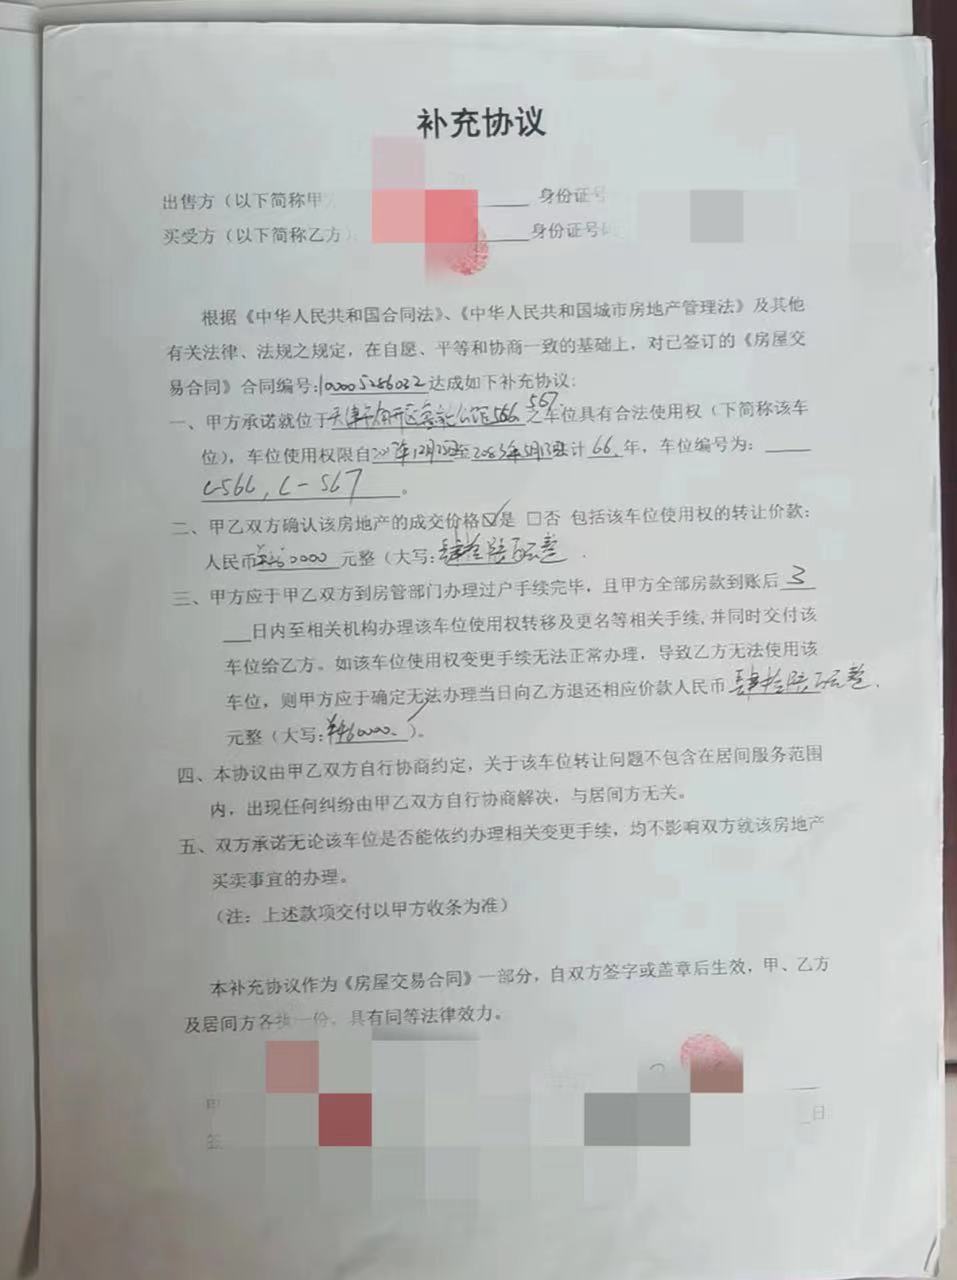 补充协议
出售方（以下简称甲 身份证号
买受方（以下简称乙方） 身份证号
根据《中华人民共和国合同法》、《中华人民共和国城市房地产管理法》及其他
有关法律、法规之规定，在自愿、平等和协商一致的基础上，对已签订的《房屋交
易合同》合同编号:100005286032达成如下补充协议:
一、甲方承诺就位于天津市南开区 公馆566 567之车位具有合法使用权（下简称该车
位），车位使用权限自 年12月 日至2083年5月13日计66年，车位编号为：
C-566, C-567。
二、甲乙双方确认该房地产的成交价格☑是 □否 包括该车位使用权的转让价款：
人民币 60000 元整（大写:肆拾陆万元整
三、甲方应于甲乙双方到房管部门办理过户手续完毕，且甲方全部房款到账后3
日内至相关机构办理该车位使用权转移及更名等相关手续,并同时交付该
车位给乙方。如该车位使用权变更手续无法正常办理，导致乙方无法使用该
车位，则甲方应于确定无法办理当日向乙方退还相应价款人民币肆拾陆万元整.
元整（大写:¥460000.）。
四、本协议由甲乙双方自行协商约定，关于该车位转让问题不包含在居间服务范围
内，出现任何纠纷由甲乙双方自行协商解决，与居间方无关。
五、双方承诺无论该车位是否能依约办理相关变更手续，均不影响双方就该房地产
买卖事宜的办理。
（注：上述款项交付以甲方收条为准）
本补充协议作为《房屋交易合同》一部分，自双方签字或盖章后生效，甲、乙方
及居间方各执一份，具有同等法律效力。
甲
签 日